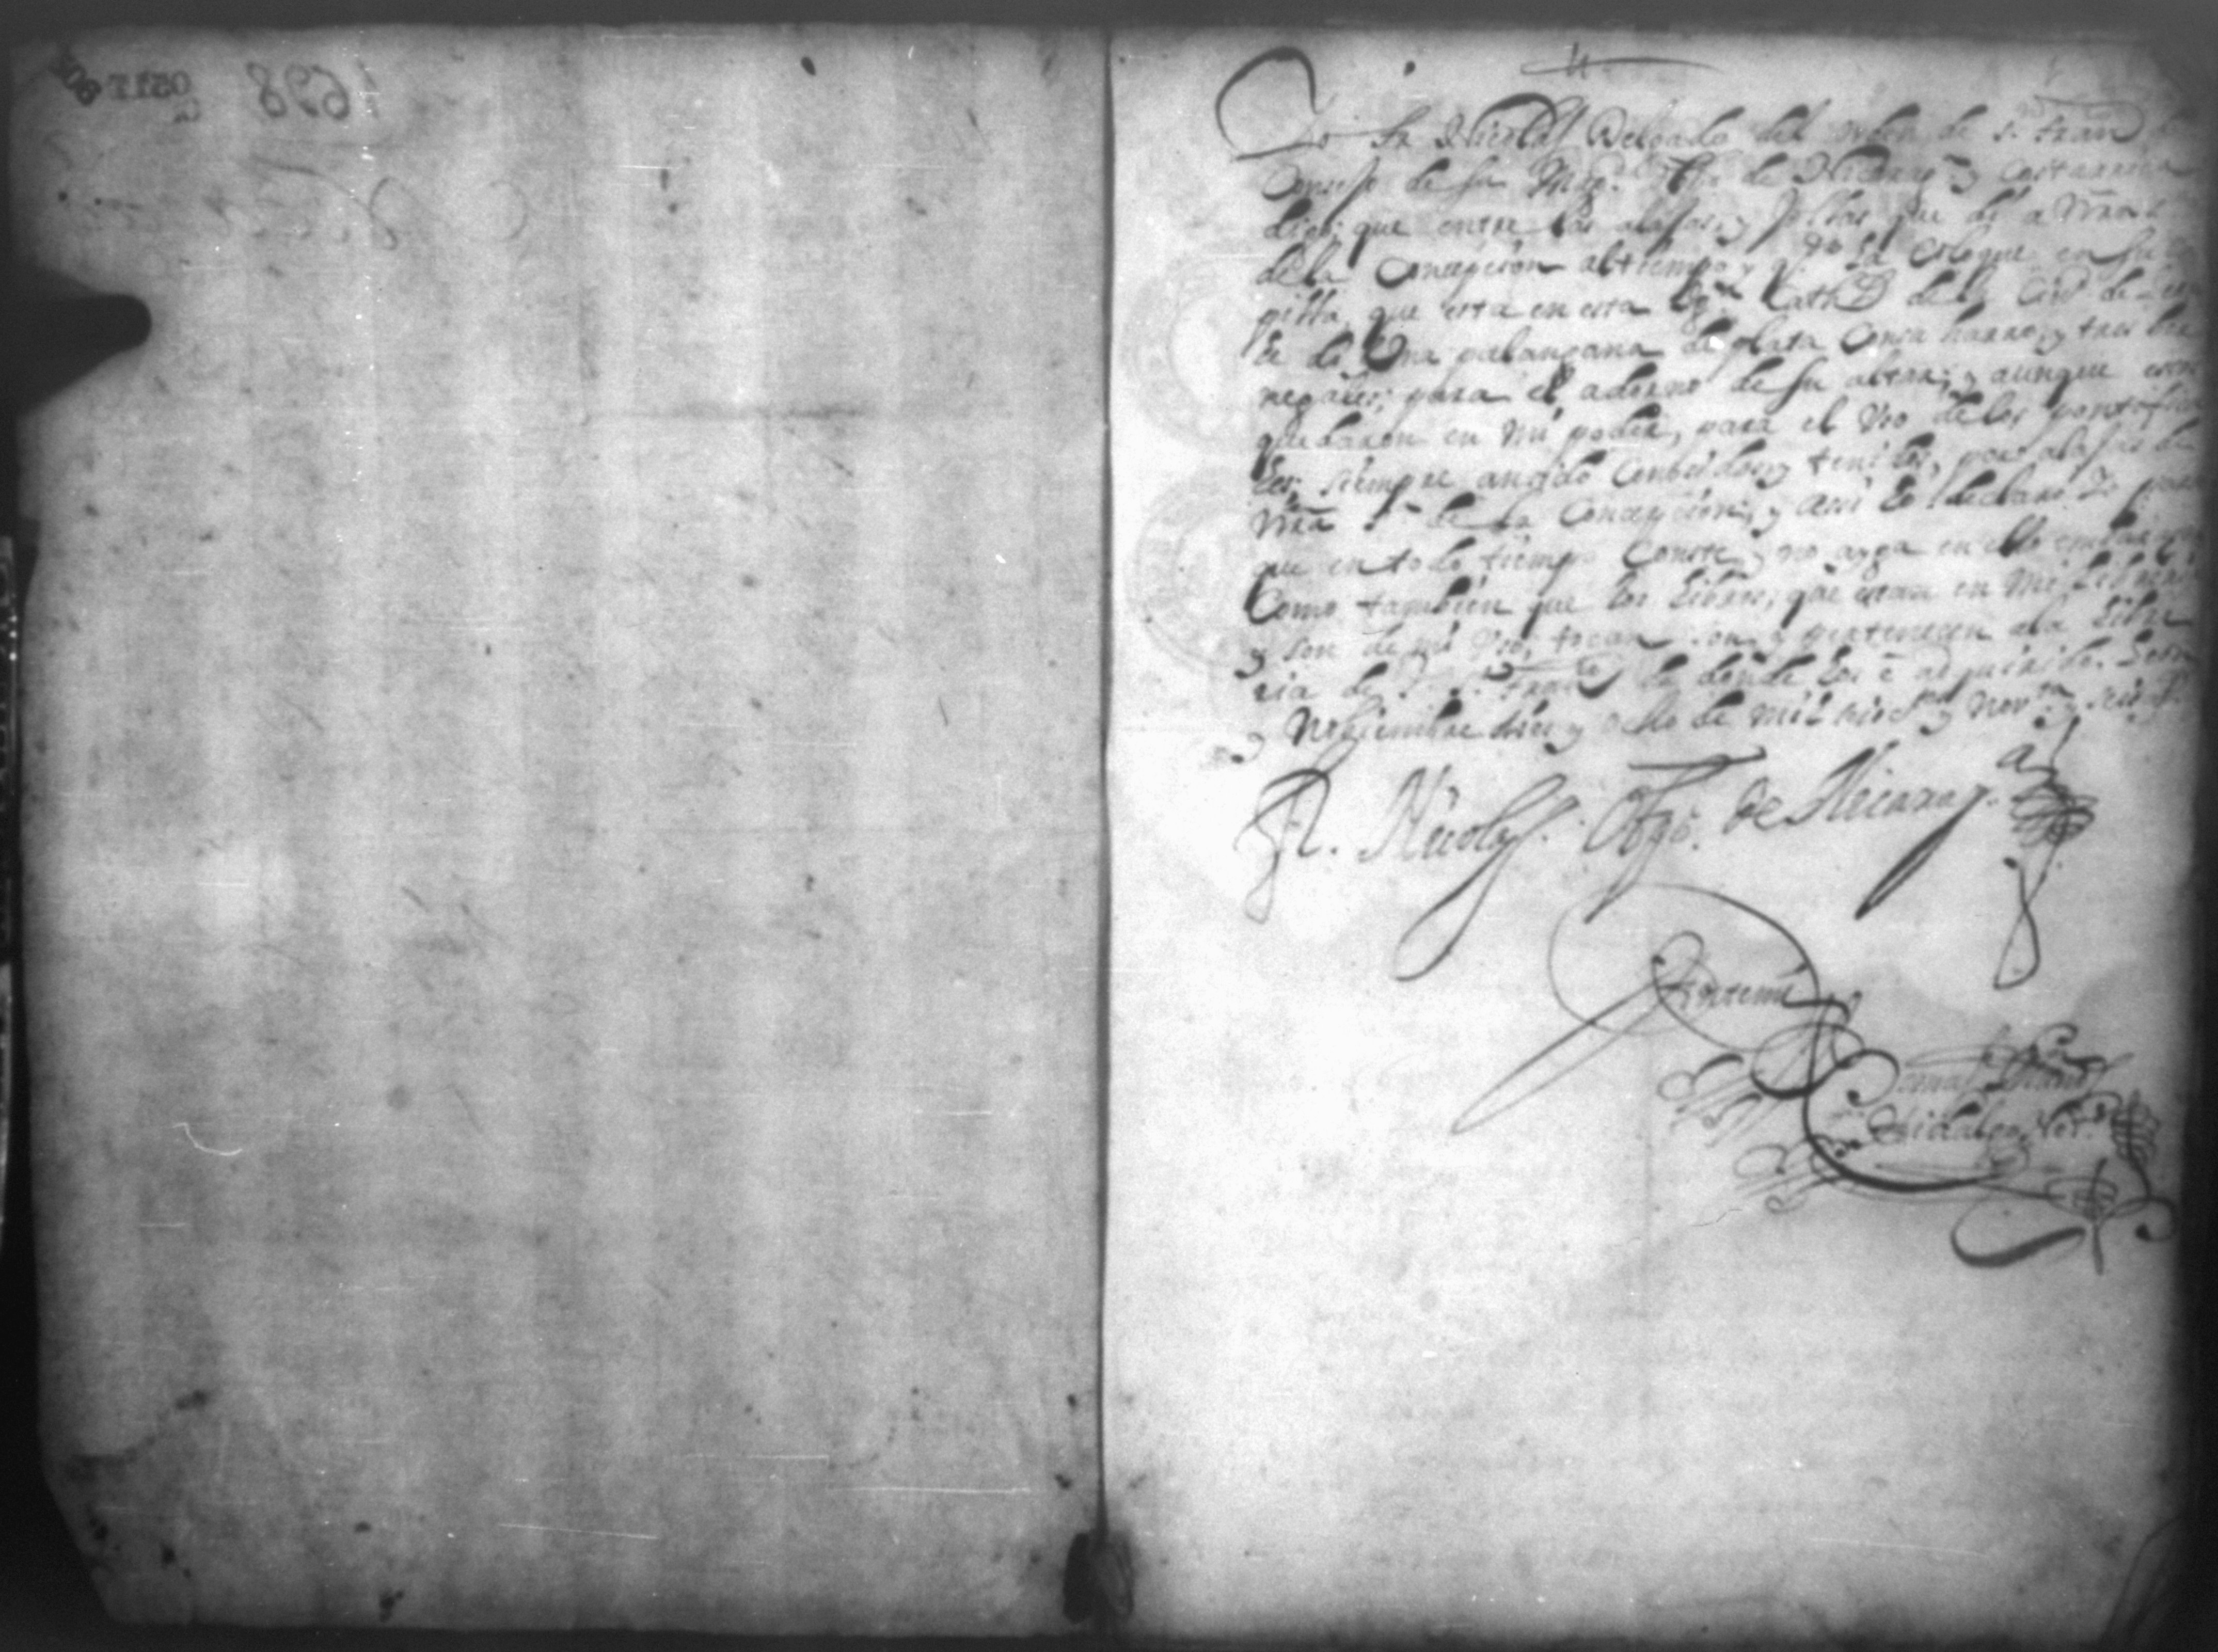 1698
Yo fr Nicolas Delgado del orden de s. Fran
Consejo de su Magd. obpo de Nicarag y Costarrica
digo: que entre las alajas, y que di a Nra
de la Concepcion al tiempo y qdo la coloque en su
pilla, que esta en esta Sta Cathd de la Ciud de Leo
le di Una palangana de plata Con su harro, y tres
para el adorno de su altar; y aunque estas
quedaron en mi poder, para el Vso de los pontifica
les; siempre an sido tenidos, por alajas de
Nra Sa de la Concepcion; y assi lo declaro Yo para
que en todo tiempo Conste y no ayga en ello
Como tambien que los Libros, que estan en mi
y son de mi Vso, tocan y pertenecen a la Libre
ria de S. Franco de donde los e adquirido. Leon
y Nobiembre dies y ocho de mil seisctos y novta y seis as
Fr. Nicolas Obpo. de Nicarag.a
Antemi
Hidalgo Notro